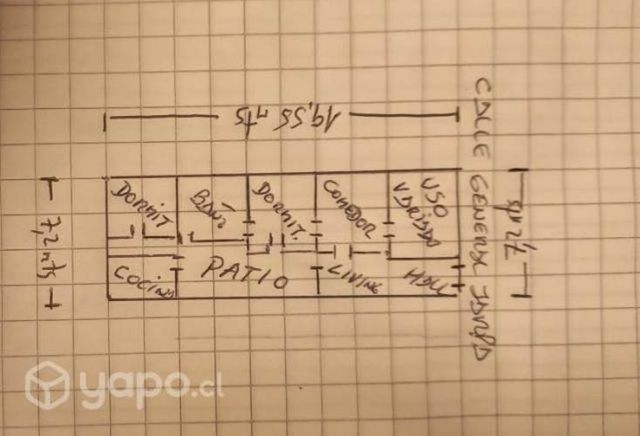 19,55 mts
CALLE GENERAL JARPA
7,2 mts
7,2 mts
DORMIT
BAÑO
DORMIT.
COMEDOR
USO
VARIADO
COCINA
PATIO
LIVING
HALL
yapo.cl